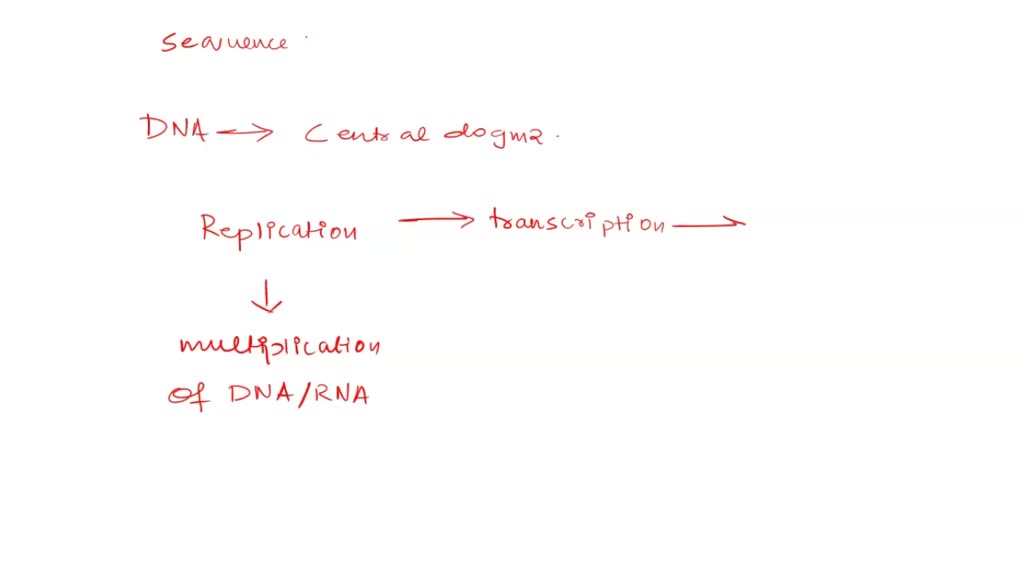 Sequence
DNA → Central dogma.
Replication → transcription →
↓
multiplication
of DNA/RNA